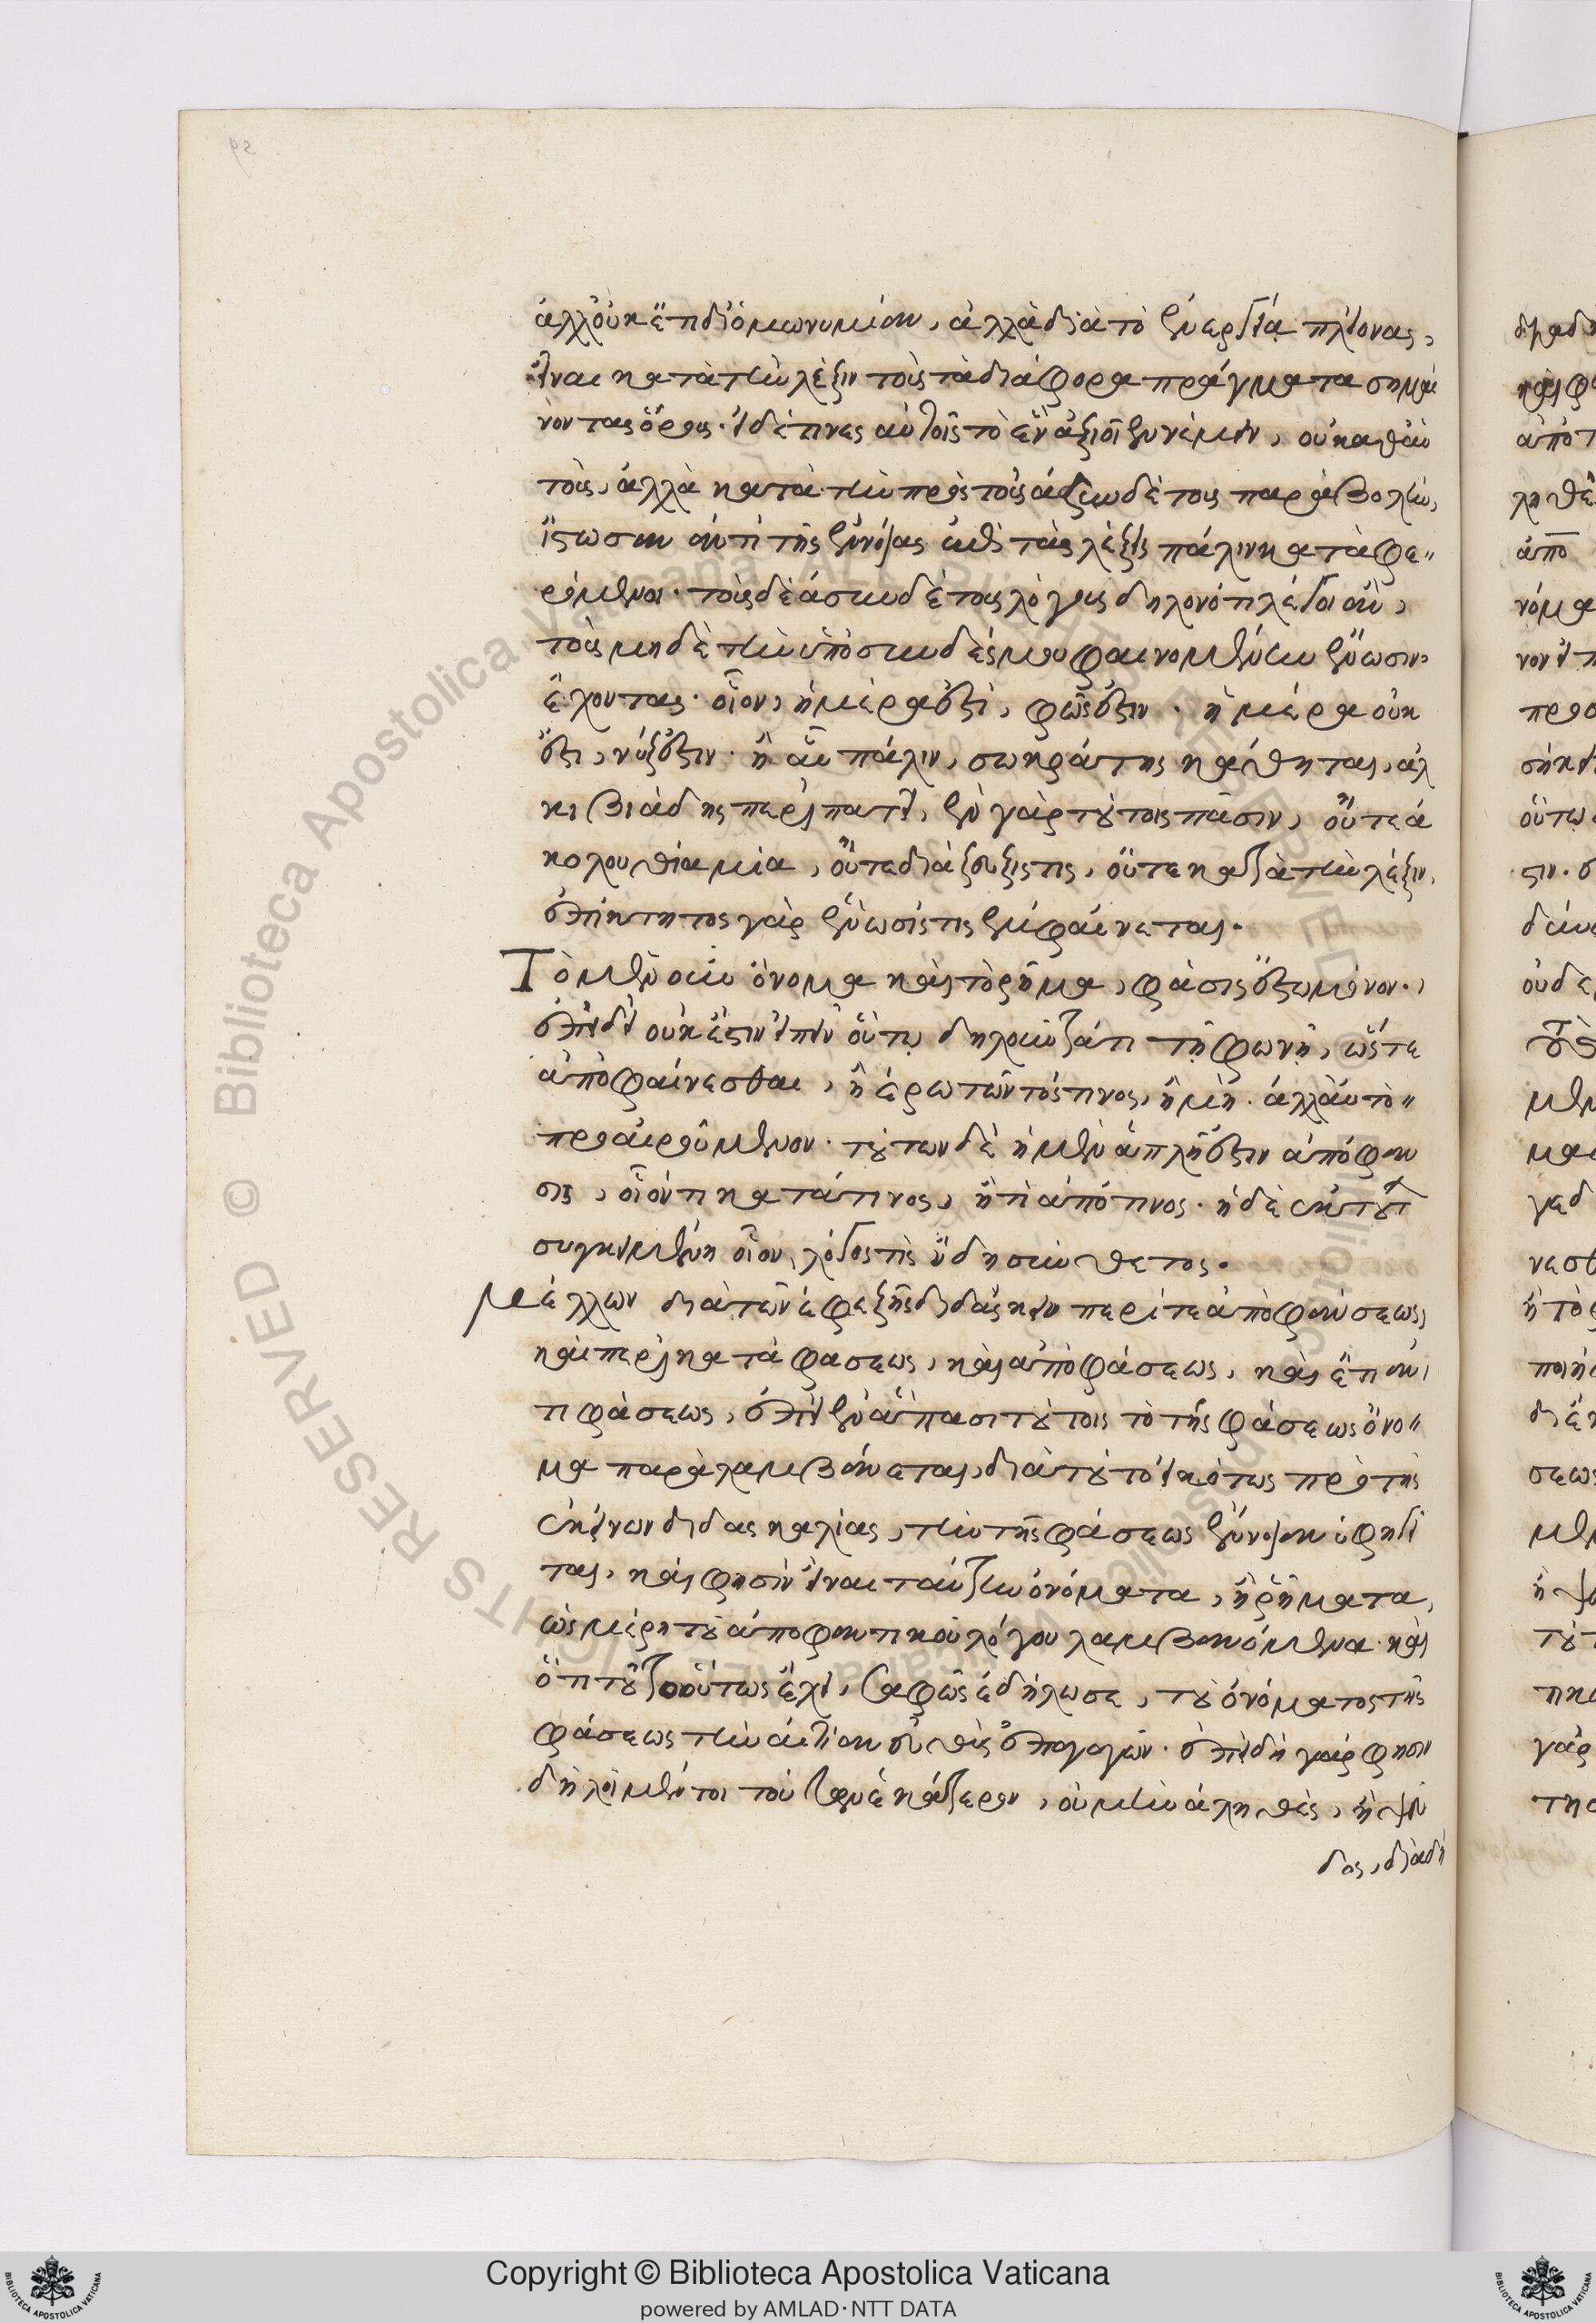 ἀλλ' οὐκ ἔτι δι' ὁμωνυμίαν, ἀλλὰ διὰ τὸ ἐνεργείᾳ πλείονας,
εἶναι κατὰ τὴν λέξιν τοὺς τὰ διάφορα πράγματα σημαί
νοντας ὅρους. εἰ δέ τινες αὐτοῖς τὸ ἓν ἀξιοῖεν νέμειν, οὐ καθ' αὑ
τοὺς, ἀλλὰ κατὰ τὴν πρὸς τοὺς ἀσυνδέτους παραβολὴν,
ἴστωσαν ἀντὶ τῆς ἐννοίας αὖθις τὰς λέξεις πάλιν καταφε"
ρόμενοι. τοὺς δὲ ἀσυνδέτους λόγους δηλονότι λέγοι ἂν,
τοὺς μηδὲ τὴν ὑπὸ συνδέσμου φαινομένην ἕνωσιν
ἔχοντας. οἷον, ἡμέρα ἐστὶ, φῶς ἐστιν. ἡμέρα οὐκ
ἔστι, νύξ ἐστιν. ἢ αὖ πάλιν, σωκράτης κάθηται, ἀλ
κιβιάδης περιπατεῖ, ἐν γὰρ τούτοις πᾶσιν, οὔτε ἀ
κολουθία μία, οὔτε διάζευξις τις, οὔτε κατὰ τὴν λέξιν,
ἐπίκτητος γὰρ ἕνωσίς τις ἐμφαίνεται.
Τὸ μὲν οὖν ὄνομα καὶ τὸ ῥῆμα, φάσις ἔστω μόνον.,
ἐπειδὴ οὐκ ἔστιν εἰπεῖν οὕτω δηλοῦντά τι τῇ φωνῇ, ὥστε
ἀποφαίνεσθαι, ἢ ἐρωτῶντός τινος, ἢ μὴ. ἀλλ' αὐτὸ"
προαιρούμενον. τούτων δὲ ἡ μὲν ἁπλῆ ἐστιν ἀπόφαν
σις, οἷόν τι κατά τινος, ἢ τὶ ἀπό τινος. ἡ δὲ ἐκ τούτων
συγκειμένη οἷον, λόγος τὶς ἤδη σύνθετος.
Μέλλων διὰ τῶν ἐφεξῆς διδάσκειν περί τε ἀποφάνσεως,
καὶ περὶ καταφάσεως, καὶ ἀποφάσεως, καὶ ἔτι ἀν
τιφάσεως, ἐπεὶ ἐν ἅπασι τούτοις τὸ τῆς φάσεως ὄνο"
μα παραλαμβάνεται, διὰ τοῦτο εἰκότως πρὸ τῆς
ἐκείνων διδασκαλίας, τὴν τῆς φάσεως ἔννοιαν ὑφηγεῖ
ται, καὶ φησὶν εἶναι ταύτην ὀνόματα, ἢ ῥήματα,
ὡς μέρη τοῦ ἀποφαντικοῦ λόγου λαμβανόμενα. καὶ
ὅτι τοῦτο οὕτως ἔχει, σαφῶς ἐδήλωσε, τοῦ ὀνόματος τῆς
φάσεως τὴν αἰτίαν εὐθὺς ἐπαγαγών. ἐπειδὴ γάρ φησιν
δηλοῖ μέν τοι τούτων ἑκάτερον, οὐ μὴν ἀληθὲς, ἢ ψεῦ
δος, διὰ δὴ